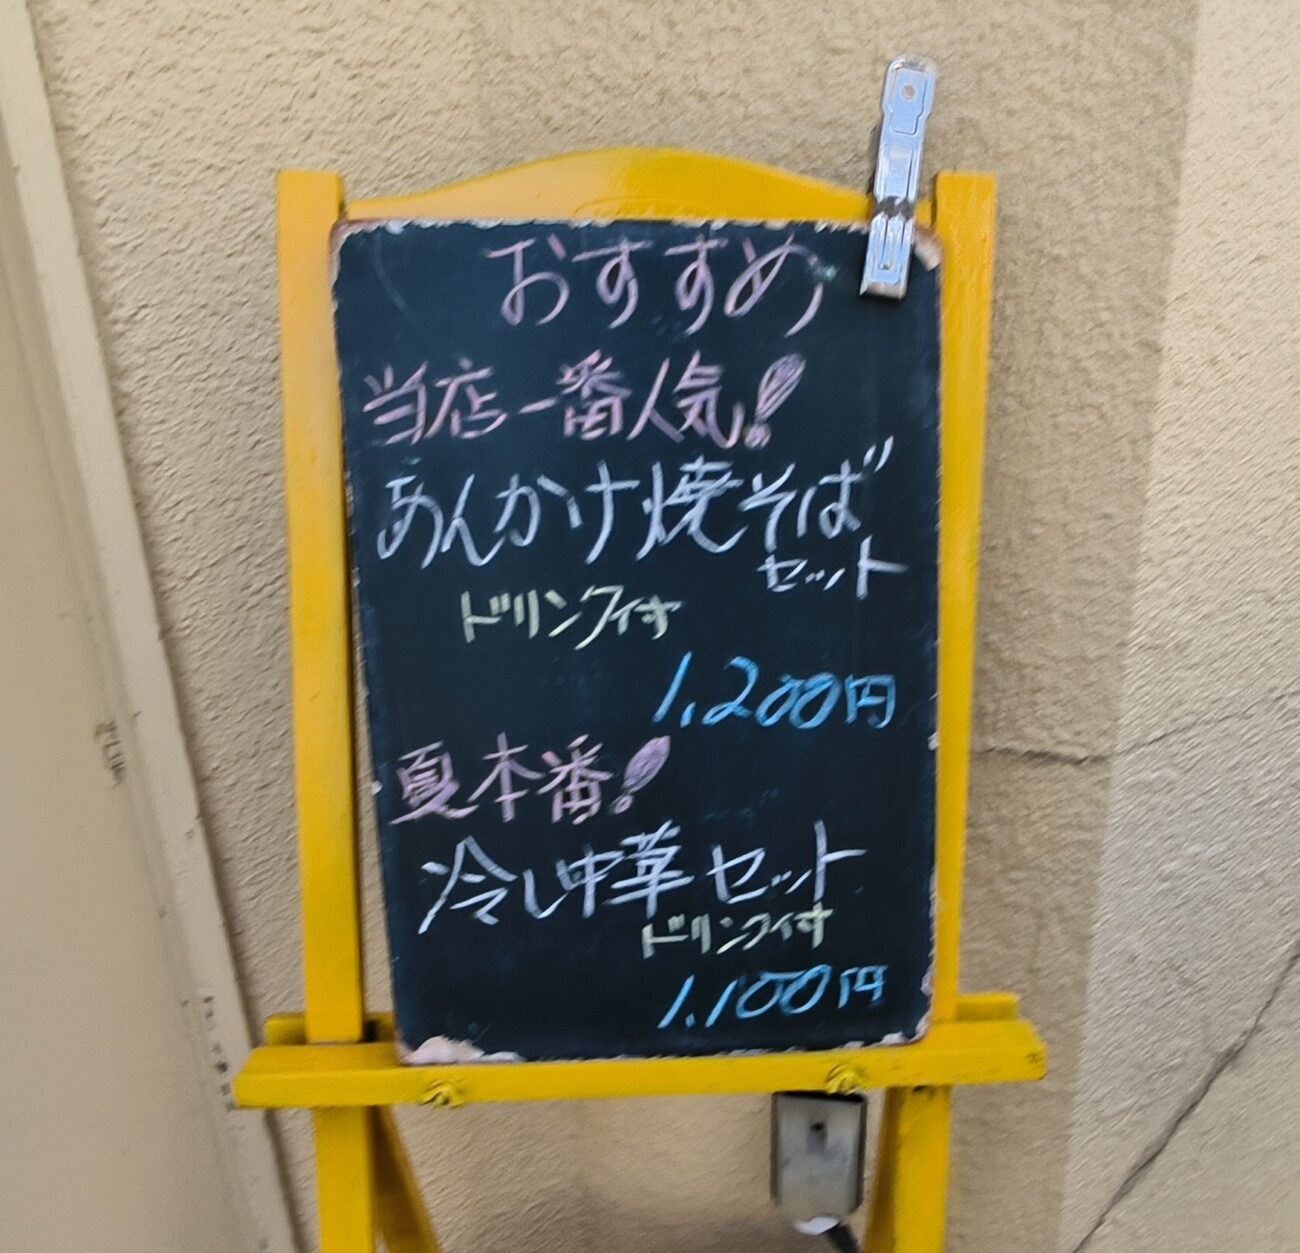 おすすめ
当店一番人気!
あんかけ焼そば
セット
ドリンク付
1,200円
夏本番!
冷し中華セット
ドリンク付
1,100円